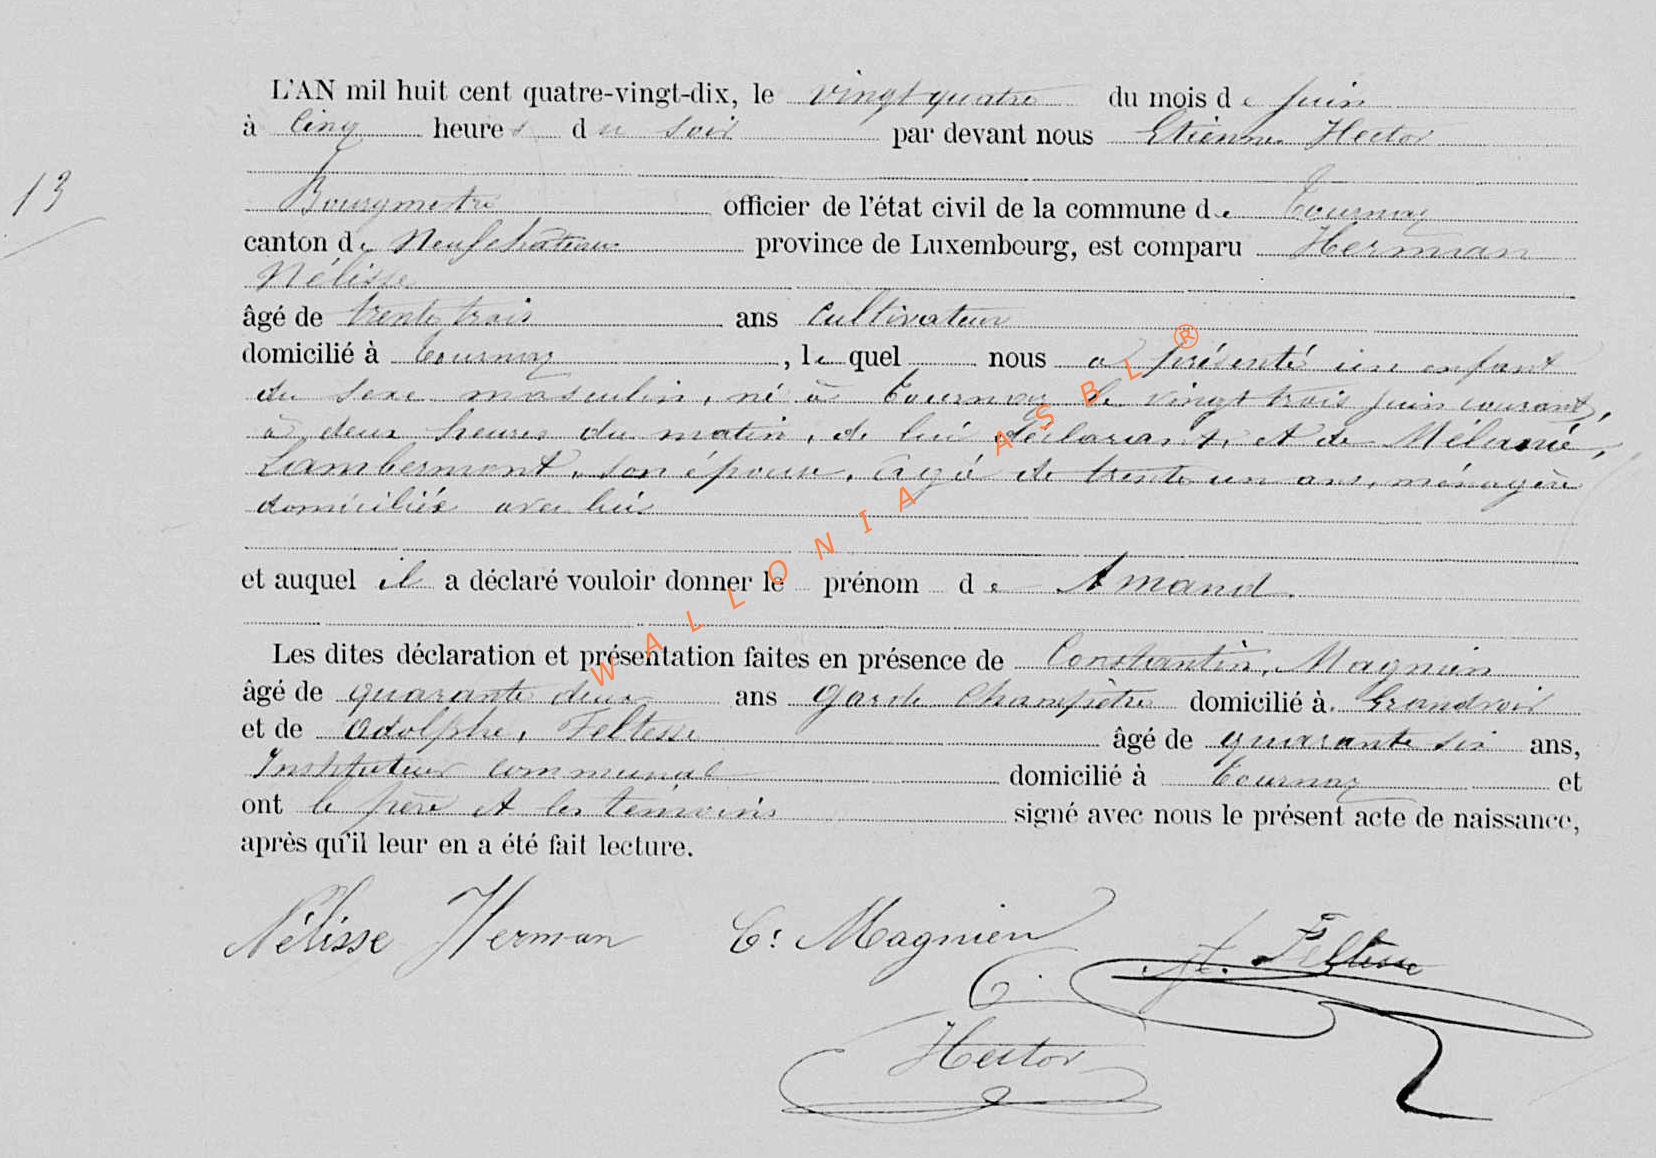 L'AN mil huit cent quatre-vingt-dix, le vingt quatre du mois de Juin
à Cinq heures du soir par devant nous Etienne Hector
13
Bourgmestre officier de l'état civil de la commune de Tournay
canton de Neufchateau province de Luxembourg, est comparu Herman
Nélisse
âgé de trente trois ans Cultivateur
domicilié à Tournay, lequel nous a présenté un enfant
du sexe masculin, né à Tournay le vingt trois Juin courant,
à deux heures du matin, de lui déclarant, et de Mélanie,
Lambermont, son épouse, agée de trente un ans, ménagère
domiciliée avec lui
et auquel il a déclaré vouloir donner le prénom de Amand.
Les dites déclaration et présentation faites en présence de Constantin, Magnien
âgé de quarante deux ans Garde Champêtre domicilié à Grandvoir
et de Adolphe, Feltesse âgé de quarante six ans,
Instituteur communal domicilié à Tournay et
ont le père et les témoins signé avec nous le présent acte de naissance,
après qu'il leur en a été fait lecture.
Nélisse Herman C: Magnien A. Feltesse
Hector
WALLONIA ASBL ®